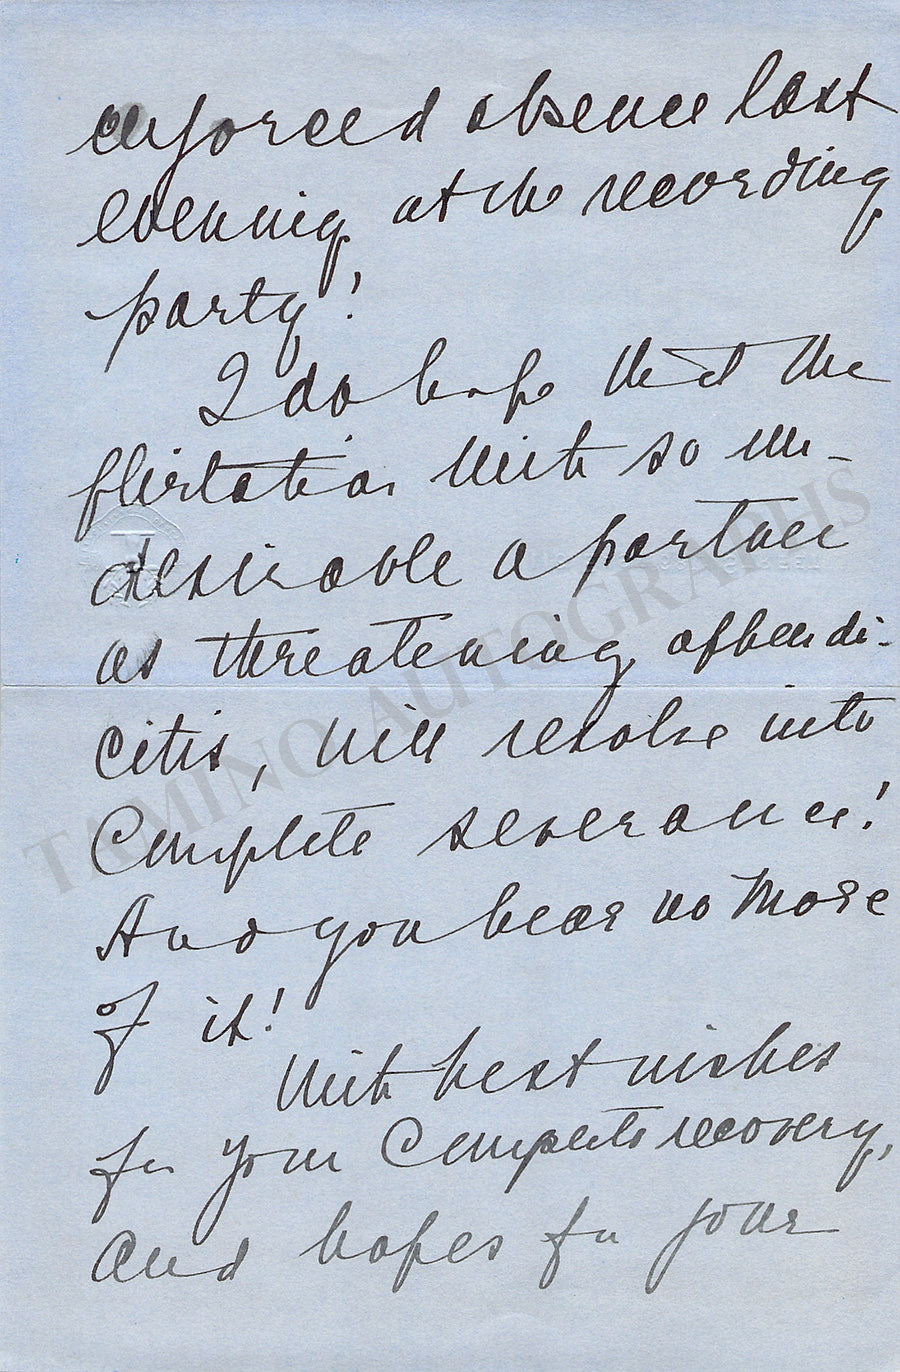 enforced absence last
evening at the recording
party!
I do hope that the
flirtation with so un-
desirable a partner
as threatening appendi-
citis, will resolve into
Complete severance!
And you hear no more
of it!
With best wishes
for your Complete recovery,
and hopes for your
TAMINO AUTOGRAPHS